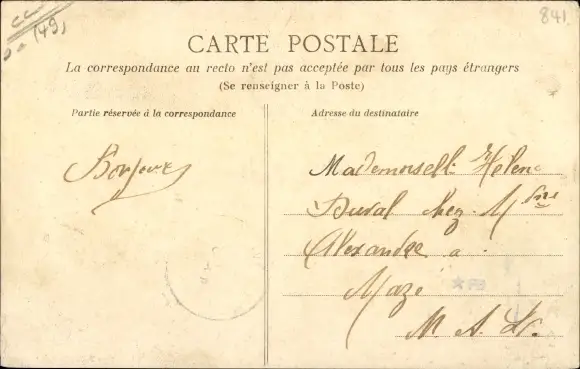 (49)
841
CARTE POSTALE
La correspondance au recto n'est pas acceptée par tous les pays étrangers
(Se renseigner à la Poste)
Partie réservée à la correspondance
Adresse du destinataire
Bonjour
Mademoiselle Helene
Duval chez Mme
Alexandre a
Mazé
M. &